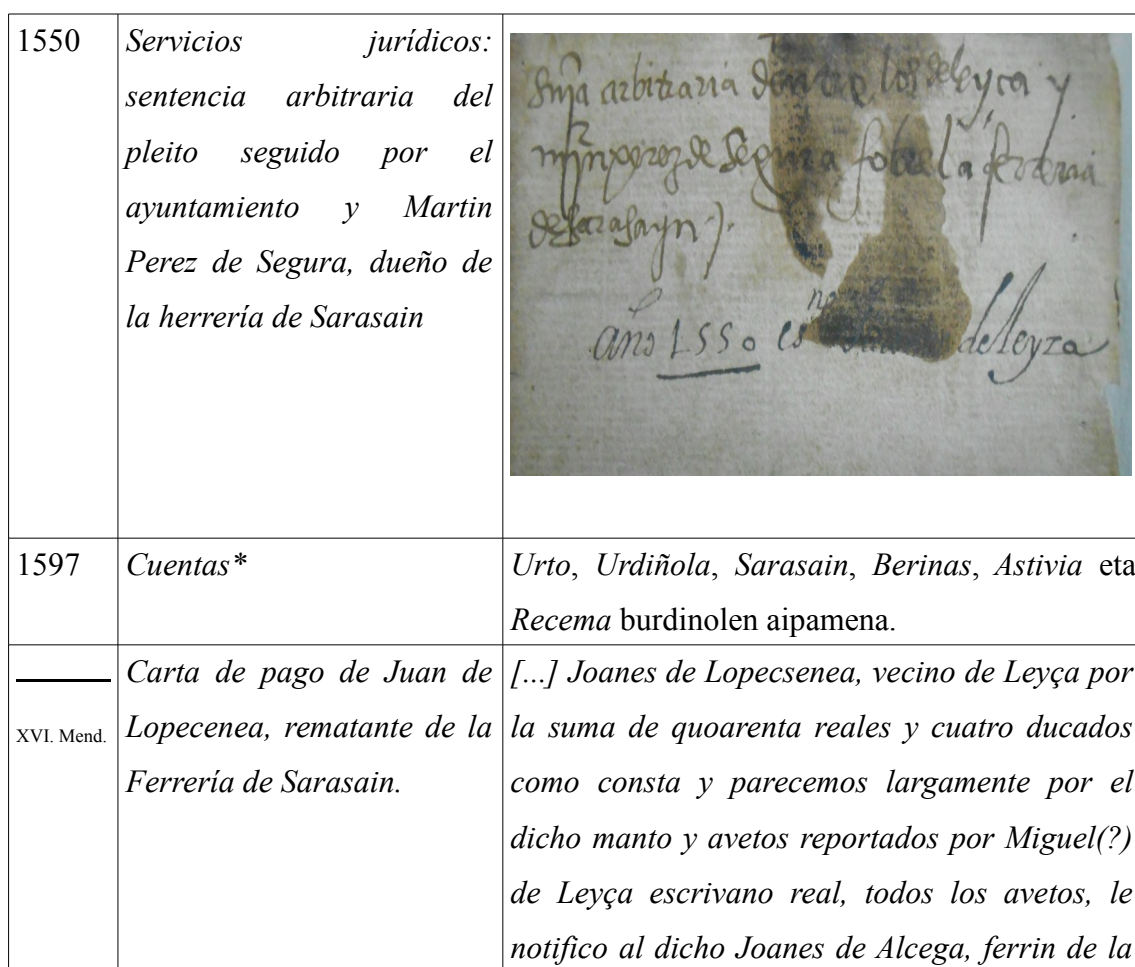 1550
Servicios jurídicos:
sentencia arbitraria del
pleito seguido por el
ayuntamiento y Martin
Perez de Segura, dueño de
la herrería de Sarasain
arbitraria los de leyça y
mjn perez de Segura sobre la ferreria
de sarasayn
año 1550 es de leyza
1597
Cuentas*
Urto, Urdiñola, Sarasain, Berinas, Astivia eta
Recema burdinolen aipamena.
XVI. Mend.
Carta de pago de Juan de
Lopecenea, rematante de la
Ferrería de Sarasain.
[...] Joanes de Lopecsenea, vecino de Leyça por
la suma de quoarenta reales y cuatro ducados
como consta y parecemos largamente por el
dicho manto y avetos reportados por Miguel(?)
de Leyça escrivano real, todos los avetos, le
notifico al dicho Joanes de Alcega, ferrin de la